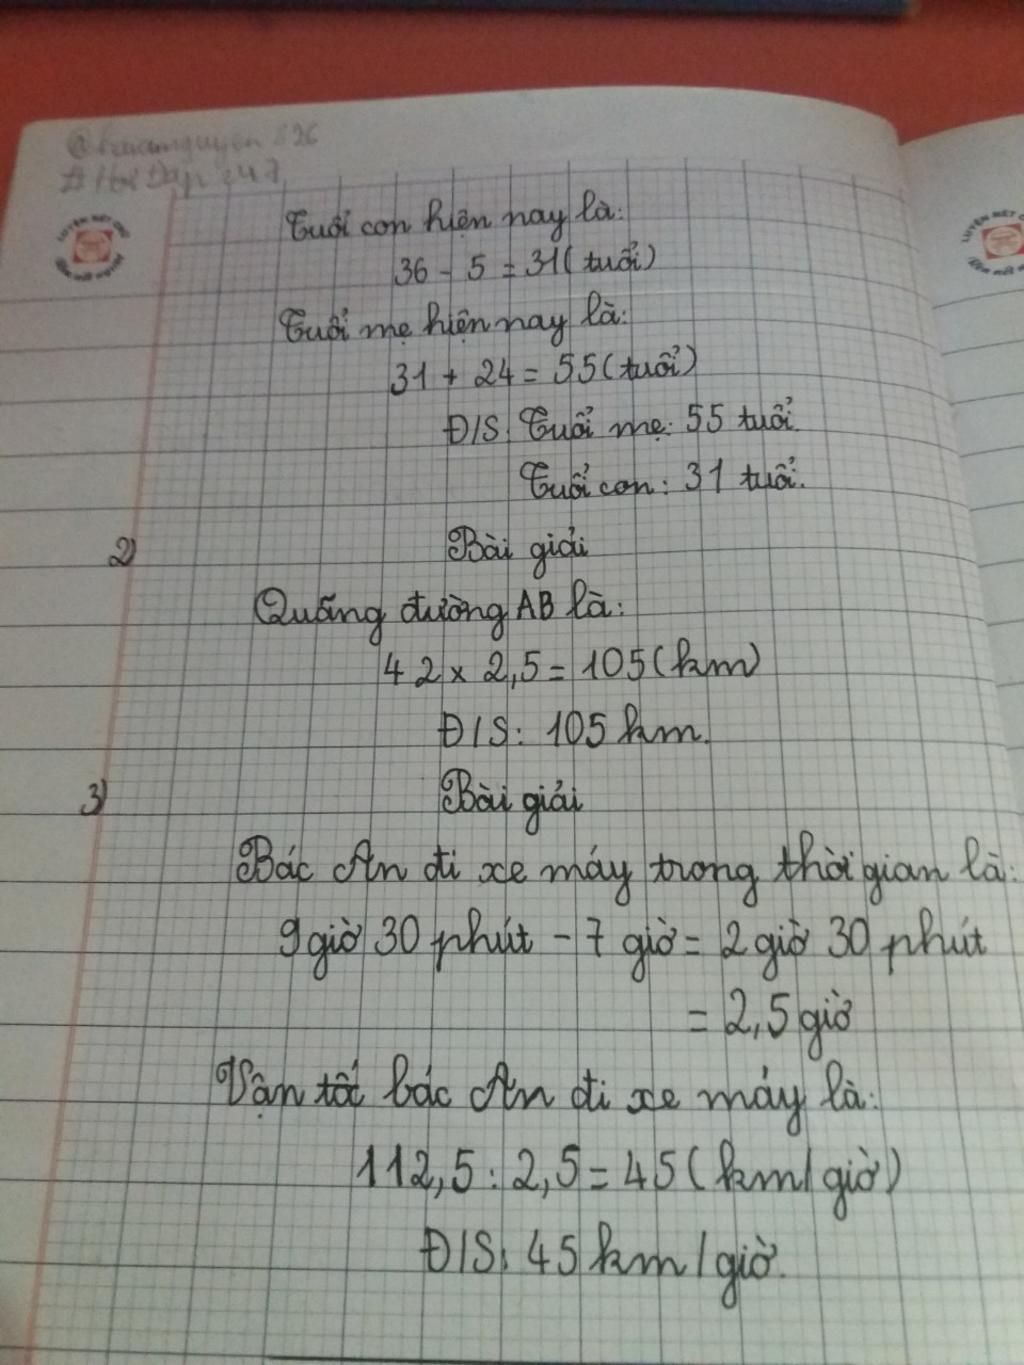 Tuổi con hiện nay là:
36 - 5 = 31 (tuổi)
Tuổi mẹ hiện nay là:
31 + 24 = 55 (tuổi)
Đ/S: Tuổi mẹ: 55 tuổi.
Tuổi con: 31 tuổi.
2) Bài giải
Quãng đường AB là:
42 x 2,5 = 105 (km)
Đ/S: 105 km.
3) Bài giải
Bác An đi xe máy trong thời gian là:
9 giờ 30 phút - 7 giờ = 2 giờ 30 phút
= 2,5 giờ
Vận tốc bác An đi xe máy là:
112,5 : 2,5 = 45 (km/giờ)
Đ/S: 45 km/giờ.